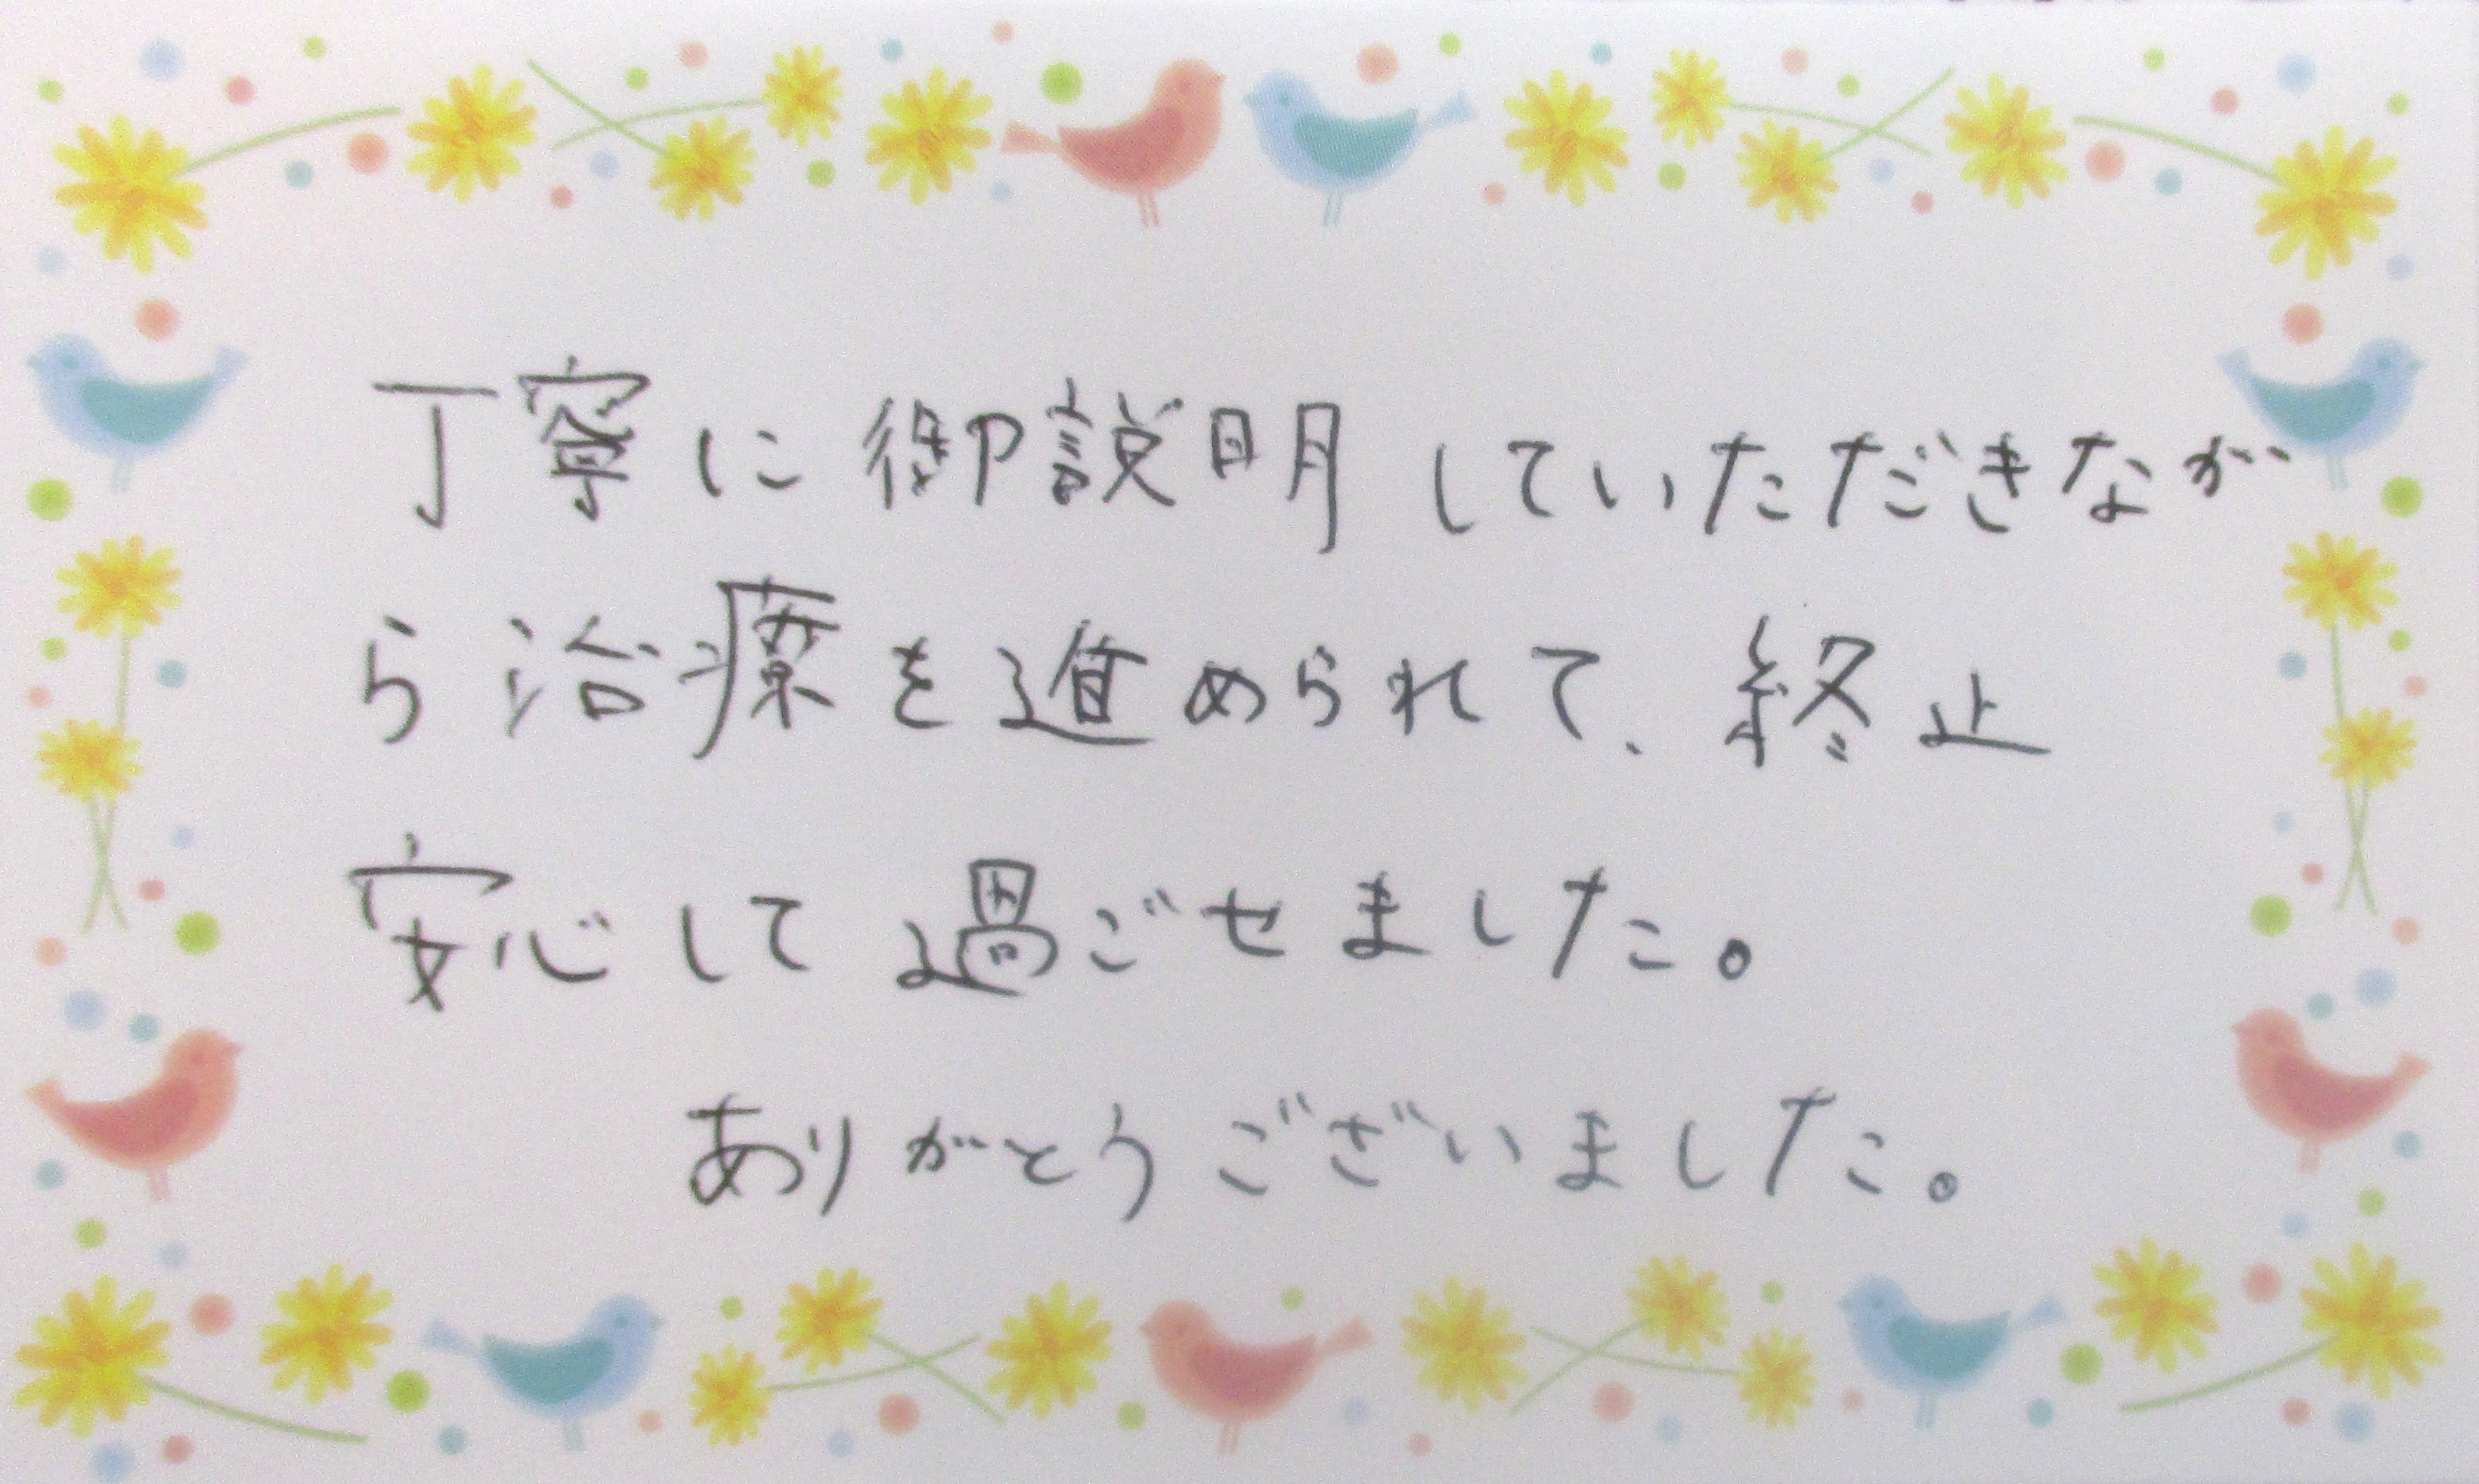 丁寧に御説明していただきなが
ら治療を進められて、終止
安心して過ごせました。
ありがとうございました。